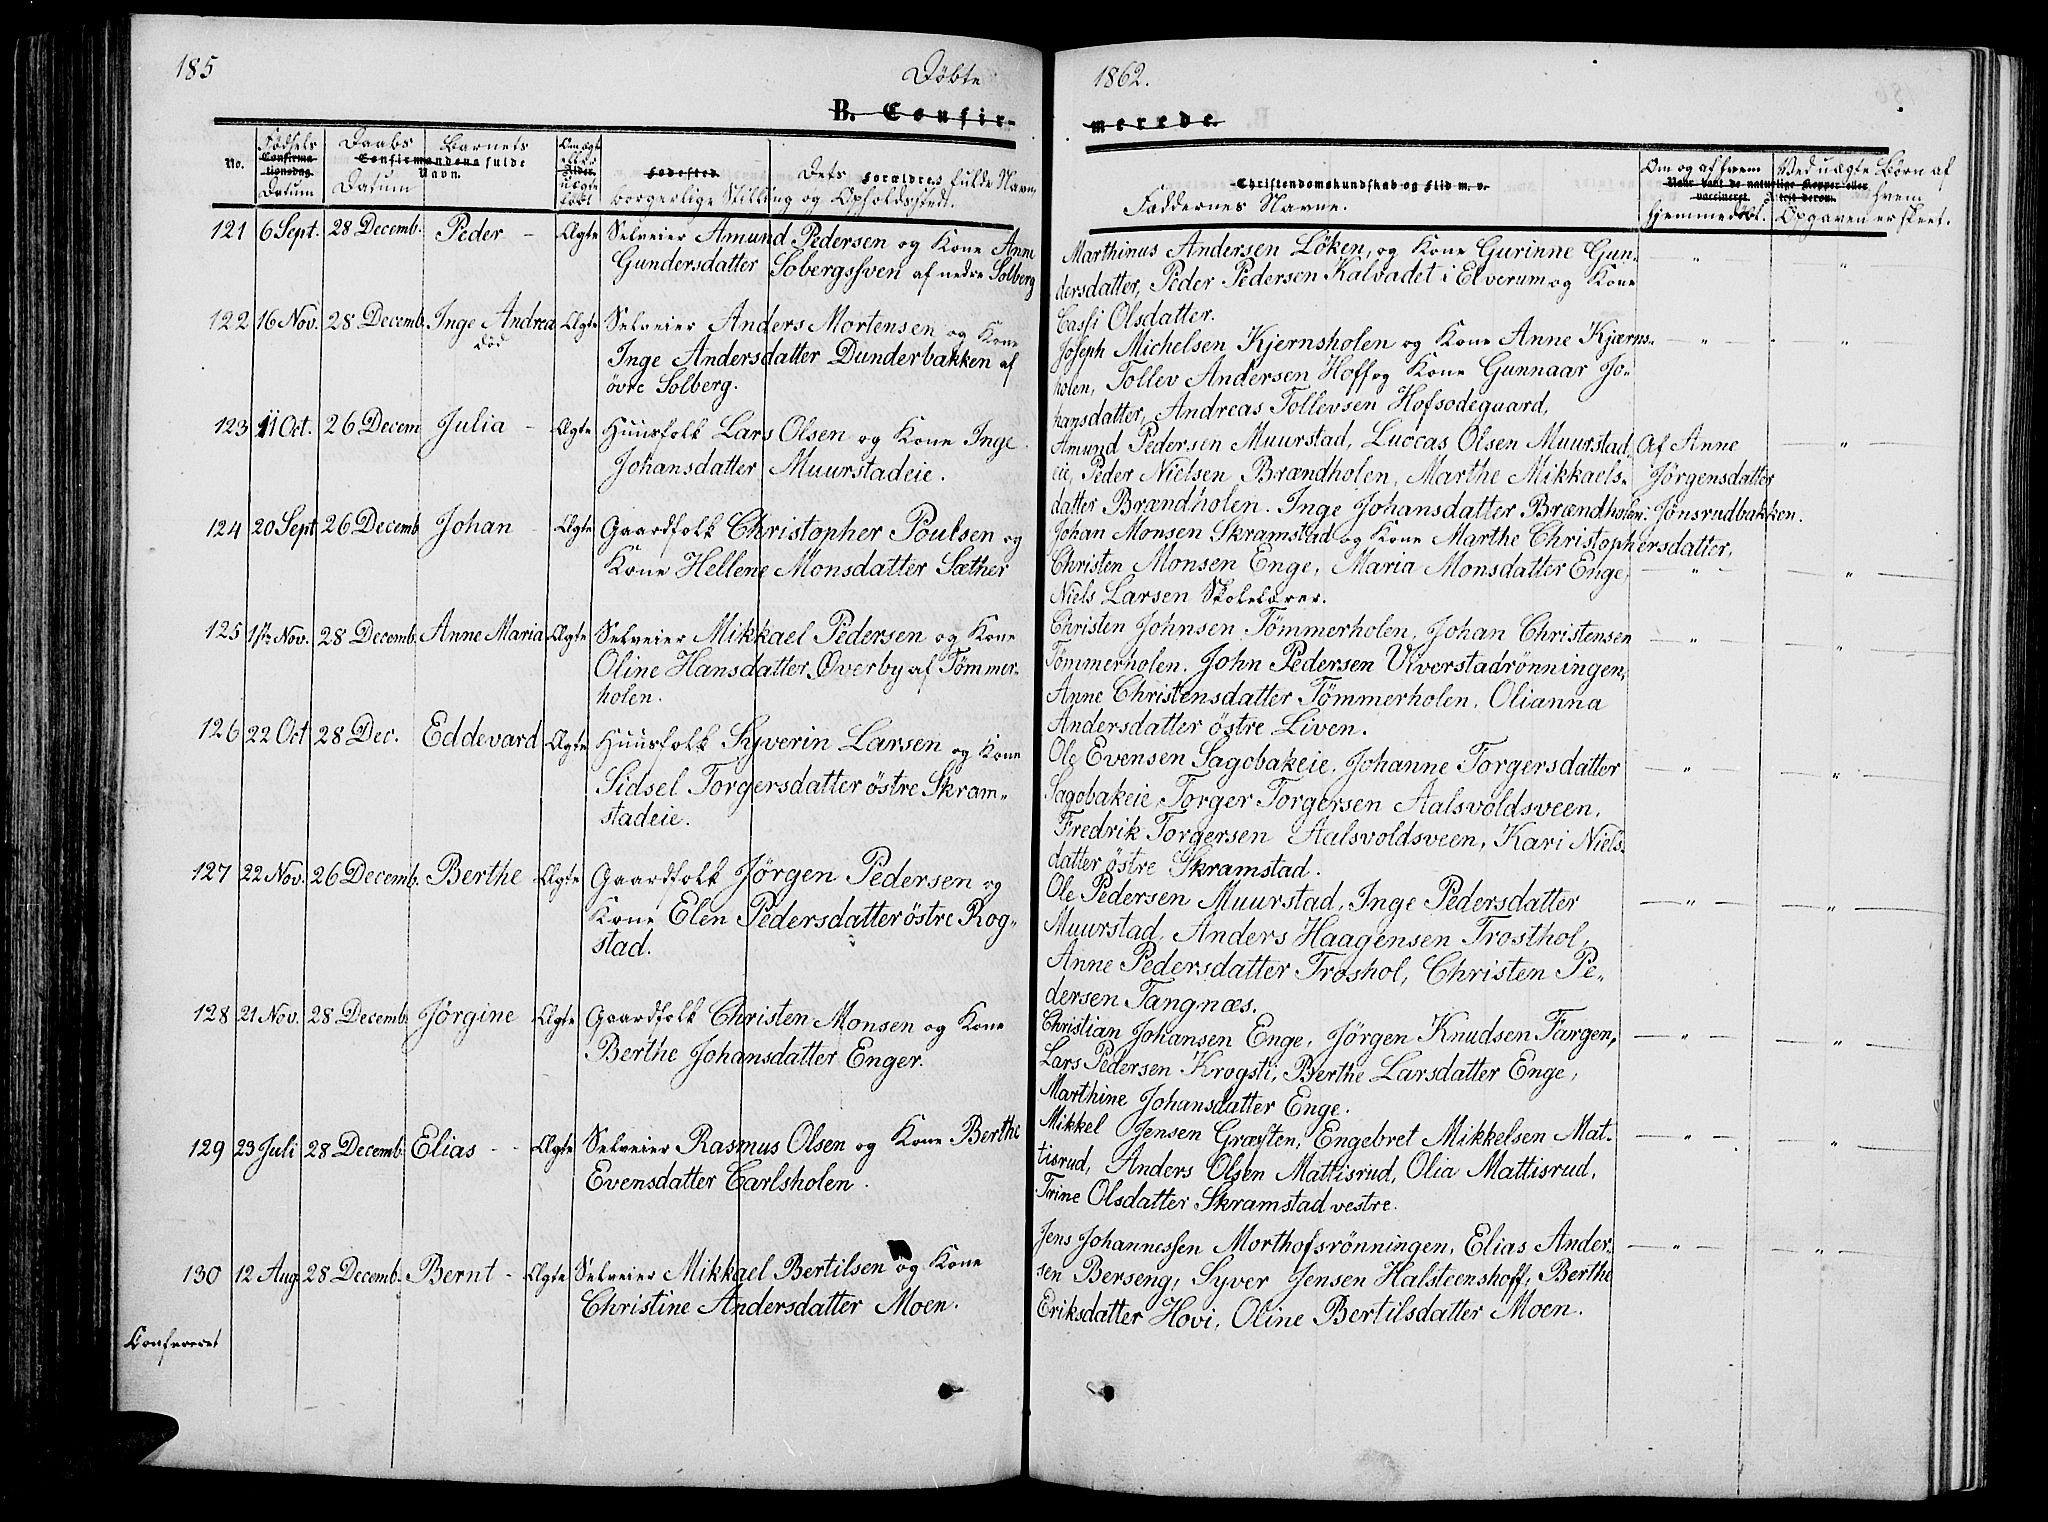 185
Döbte
1862.
B. Confir-
merede.
No.
Fødsels
Confirma-
tionsdag.
Datum
Daabs
Barnets
Confirmandens fulde
Navn.
Datum
Om ægte
eller
Alder.
uægte
født
Fødested
Dets Forældres fulde Navn,
borgerlige Stilling og Opholdsstedt.
Christendomskundskab og Flid m. v.
Faddernes Navne.
Om og af hvem
hjemmedöbt.
Ved uægte Börn af
hvem
Opgaven er skeet.
121 6 Sept. 28 Decemb. Peder - Ægte Selveier Amund Pedersen og Kone Anne
Gundersdatter Sobergssven af nedre Solberg
Marthinus Andersen Löken, og Kone Gurinne Gun-
dersdatter, Peder Pedersen Kalvadet i Elverum og Kone
Cassi Olsdatter.
122 16 Nov. 28 Decemb. Inge Andrea Ægte Selveier Anders Mortensen og Kone
död
Inge Andersdatter Dunderbakken af
övre Solberg.
Joseph Michelsen Kjernsholen og Kone Anne Kjærns-
holen, Tollev Andersen Hoff og Kone Gunnaar Jo-
hansdatter, Andreas Tollevsen Hofsodeguard,
123 11 Oct. 26 Decem Julia - Ægte Huusfolk Lars Olsen og Kone Inge
Johansdatter Muurstadeie.
Amund Pedersen Muurstad, Luccas Olsen Muurstad
eie, Peder Nielsen Brændholen, Marthe Mikkaels-
datter Brændholen. Inge Johansdatter Brændholen.
Af Anne
Jörgensdatter
Jönsrudbakken.
124 20 Sept 26 Decemb Johan - Ægte Gaardfolk Christopher Poulsen og
Kone Hellene Monsdatter Sæther
Johan Monsen Skramstad og Kone Marthe Christophersdatter,
Christen Monsen Enge, Maria Monsdatter Enge,
Niels Larsen Skolelærer.
125 1ste Nov. 28 Decemb. Anne Maria Ægte Selveier Mikkael Pedersen og Kone
Oline Hansdatter Overby af Tömmer-
holen.
Christen Johnsen Tömmerholen, Johan Christensen
Tömmerholen. John Pedersen Ulverstadrönningen,
Anne Christensdatter Tömmerholen, Olianna
Andersdatter östre Liven.
126 22 Oct 28 Dec. Eddevard Ægte Huusfolk Syverin Larsen og Kone
Sidsel Torgersdatter östre Skram-
stadeie.
Ole Evensen Sagobakeie, Johanne Torgersdatter
Sagobakeie, Torger Torgersen Aalsvoldsveen,
Fredrik Torgersen Aalsvoldsveen, Kari Niels-
datter östre Skramstad.
127 22 Nov. 26 Decemb. Berthe Ægte Gaardfolk Jörgen Pedersen og
Kone Elen Pedersdatter östre Rog-
stad.
Ole Pedersen Muurstad, Inge Pedersdatter
Muurstad, Anders Haagensen Trosthol,
Anne Pedersdatter Troshol, Christen Pe-
dersen Tangnæs.
128 21 Nov. 28 Decemb. Jørgine Ægte Gaardfolk Christen Monsen og Kone
Berthe Johansdatter Enger.
Christian Johansen Enge, Jörgen Knudsen Fargen,
Lars Pedersen Krogsti, Berthe Larsdatter Enge,
Marthine Johansdatter Enge.
129 23 Juli 28 Decemb. Elias - - Ægte Selveier Rasmus Olsen og Kone Berthe
Evensdatter Carlsholen.
Mikkel Jensen Græften, Engebret Mikkelsen Mat-
tisrud, Anders Olsen Mattisrud, Olia Mattisrud,
Trine Olsdatter Skramstad vestre.
130 12 Aug 28 Decemb. Bernt - Ægte Selveier Mikkael Bertilsen og Kone
Christine Andersdatter Moen.
Jens Johannessen Morthofsrönningen, Elias Ander-
sen Berseng, Syver Jensen Halsteenshoff, Berthe
Eriksdatter Hovi, Oline Bertilsdatter Moen.
Confereret